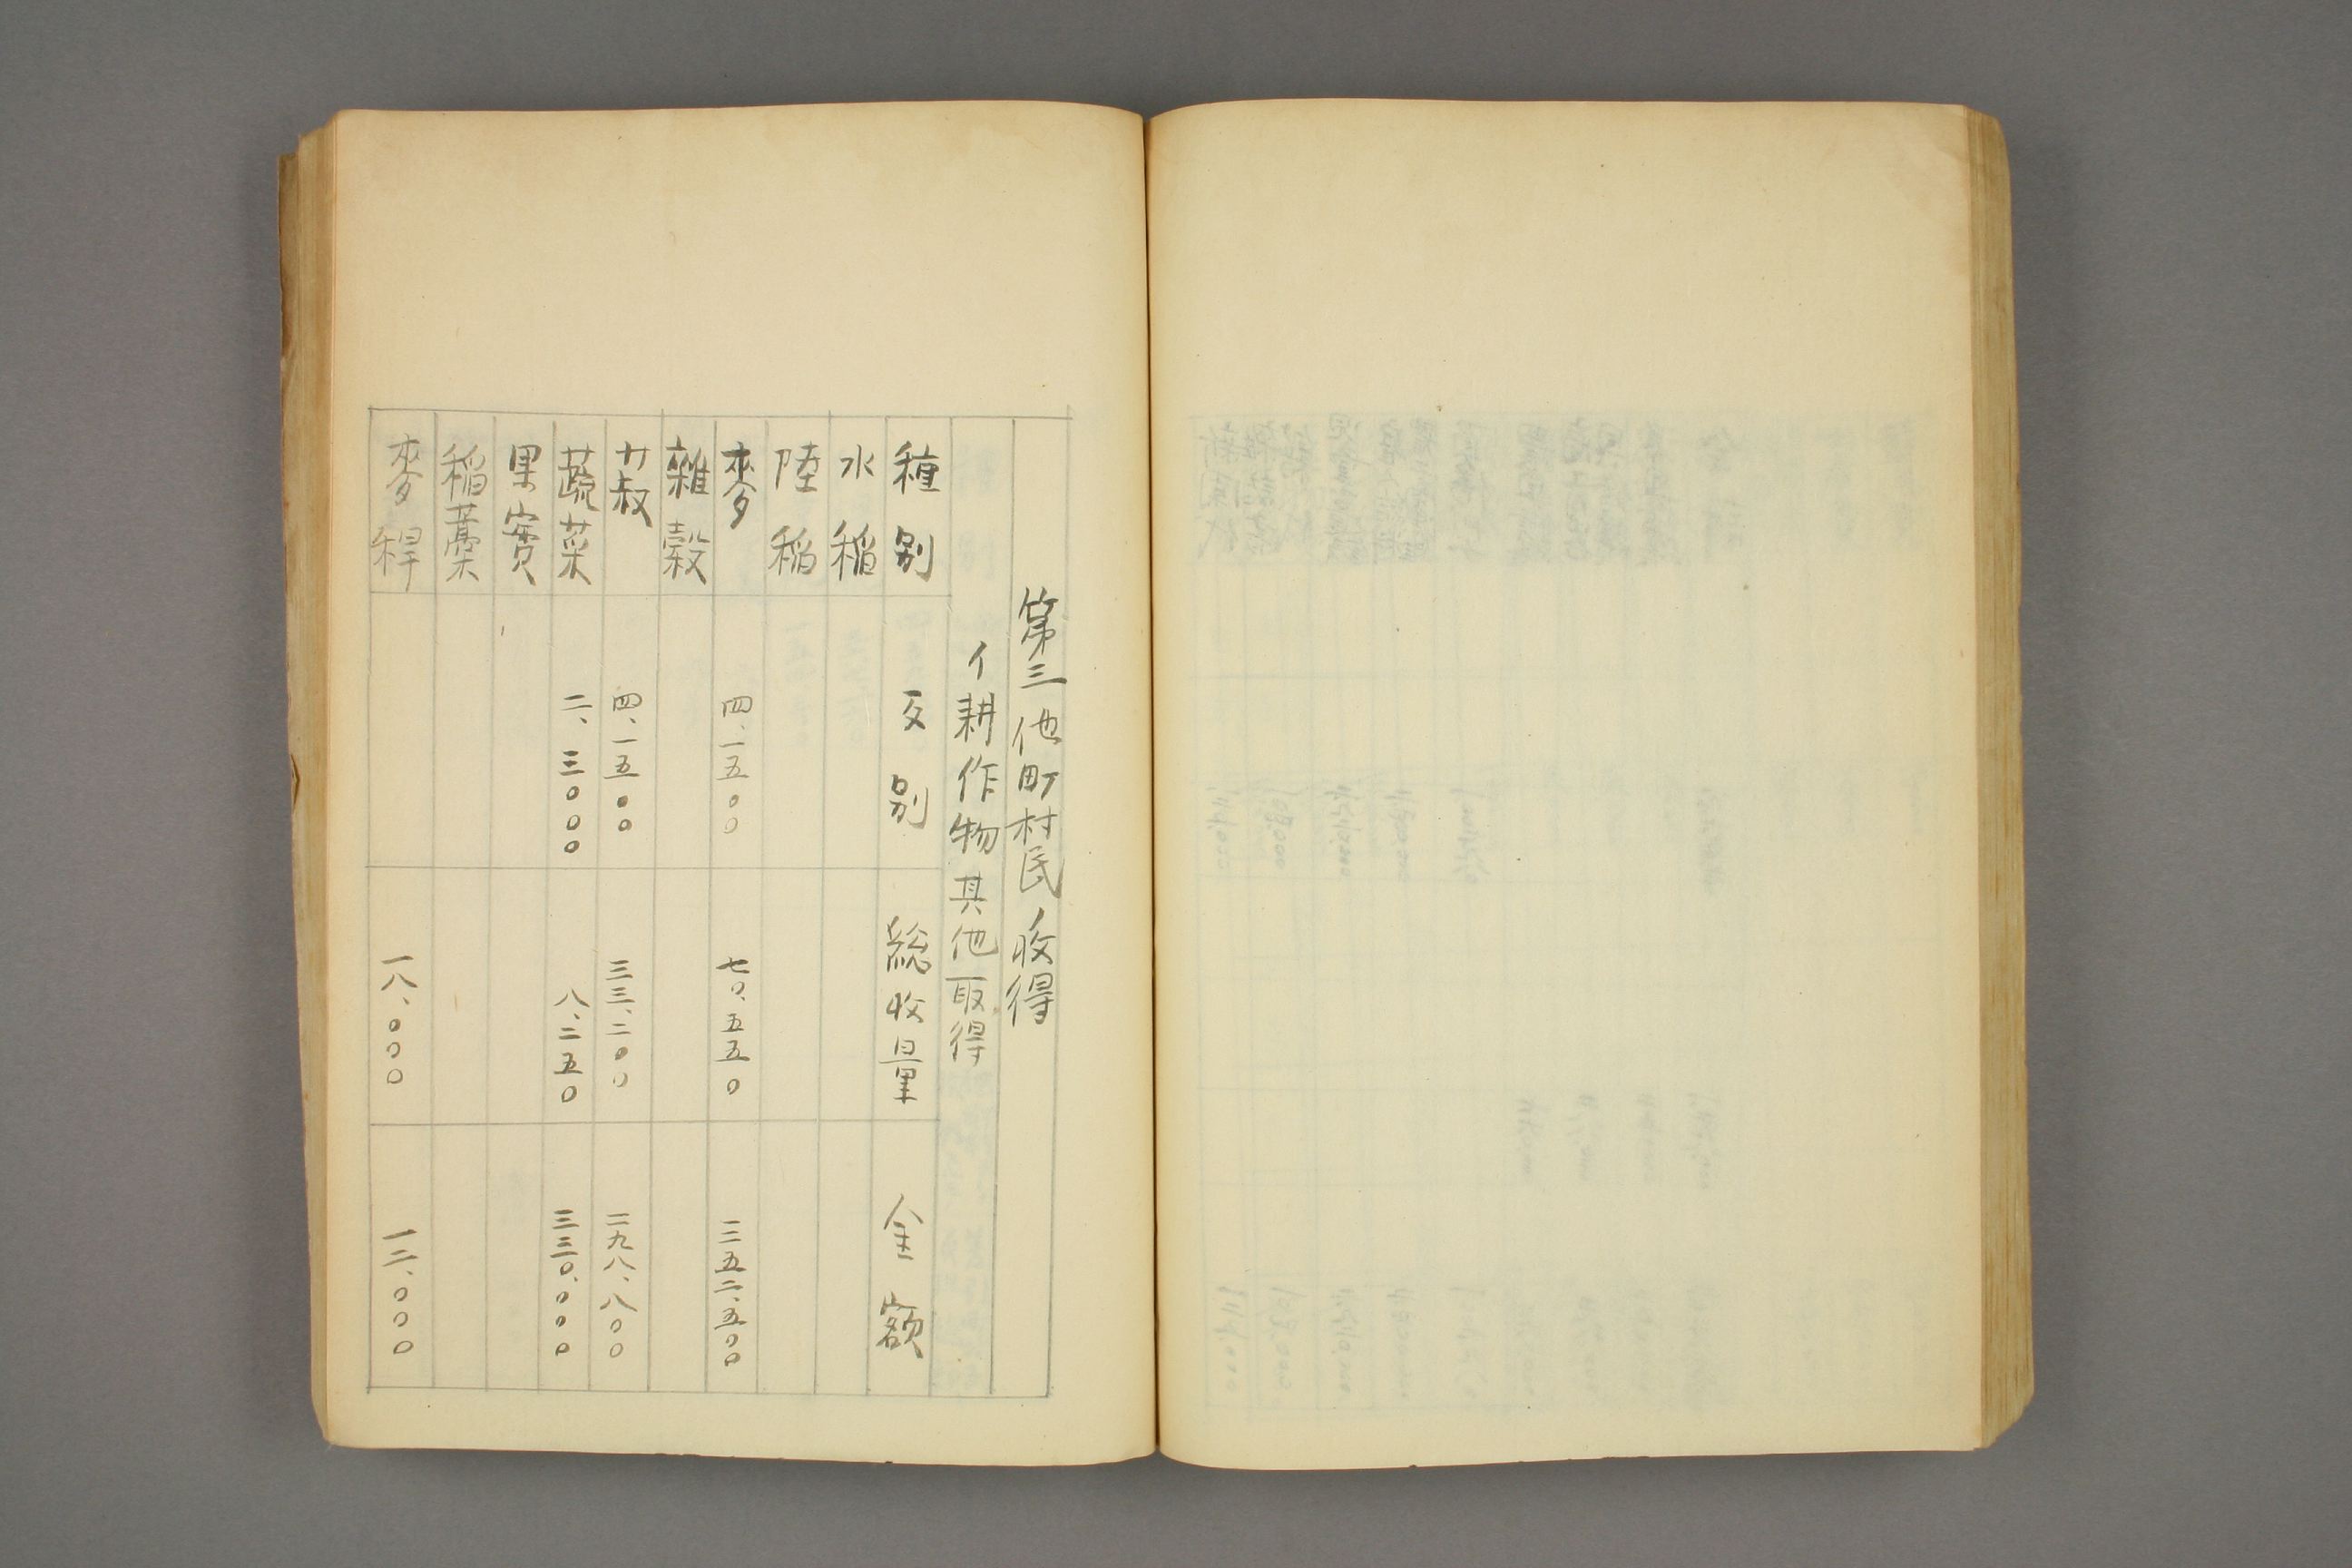 第三他町村民收得
イ耕作物其他取得
種別 反別 総收量 金額
水稲
陸稲
麥 四、一五〇〇 七〇、五五〇 三五二、五〇〇
雜穀
廾叔 四、一五〇〇 三三、二〇〇 二九八、八〇〇
蔬菜 二、三〇〇〇 八、二五〇 三三〇、〇〇〇
果實
稲藁
麥稈 一八、〇〇〇 一二、〇〇〇